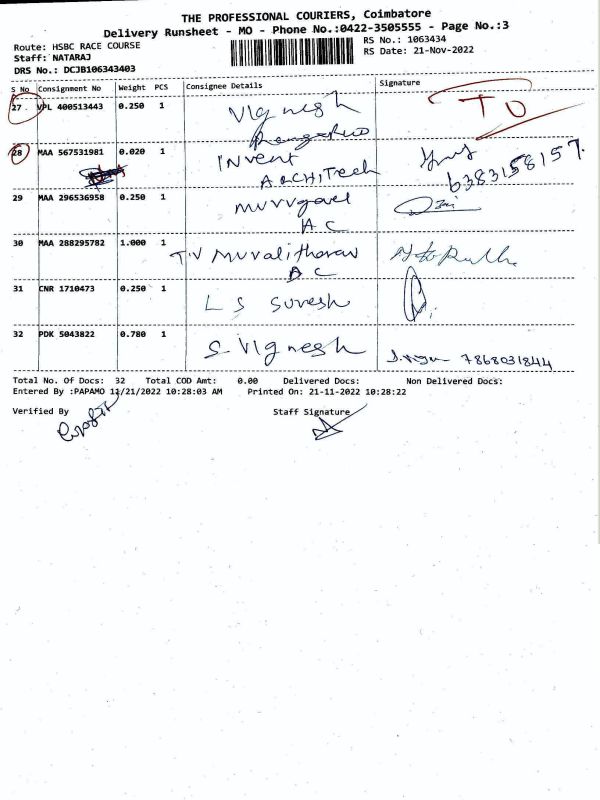 THE PROFESSIONAL COURIERS, Coimbatore
Delivery Runsheet - MO - Phone No.:0422-3505555 - Page No.:3
Route: HSBC RACE COURSE
RS No.: 1063434
Staff: NATARAJ
RS Date: 21-Nov-2022
DRS No.: DCJB106343403
S No Consignment No Weight PCS Consignee Details Signature
27 VPL 400513443 0.250 1 Vignesh TO
28 MAA 567531981 0.020 1 INvent
ARCHITech 6383158157.
29 MAA 296536958 0.250 1 muvvgavel
AC
30 MAA 288295782 1.000 1 T.V muvalitharav
AC
31 CNR 1710473 0.250 1 LS Suresh
32 PDK 5043822 0.780 1 S. VIgnesh
7868031844
Total No. Of Docs: 32 Total COD Amt: 0.00 Delivered Docs: Non Delivered Docs:
Entered By :PAPAMO 11/21/2022 10:28:03 AM Printed On: 21-11-2022 10:28:22
Verified By Staff Signature